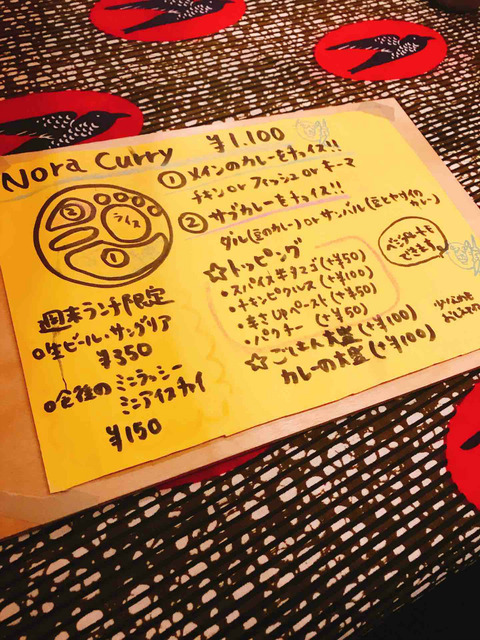 Nora Curry ¥1.100
① メインのカレーをチョイス!!
チキン or フィッシュ or キーマ
② サブカレーをチョイス!!
ダル(豆のカレー) or サンバル(豆とヤサイのカレー)
②
ライス
①
ベジプレートも
できます。
☆トッピング
・スパイス半タマゴ(+¥50)
・チキンピクルス(+¥100)
・辛さupペースト(+¥50)
・パクチー(+¥50)
☆ごはん大盛(+¥100)
カレーの大盛(+¥100)
週末ランチ限定
○生ビール・サングリア
¥350
○食後のミニラッシー
ミニアイスチャイ
¥150